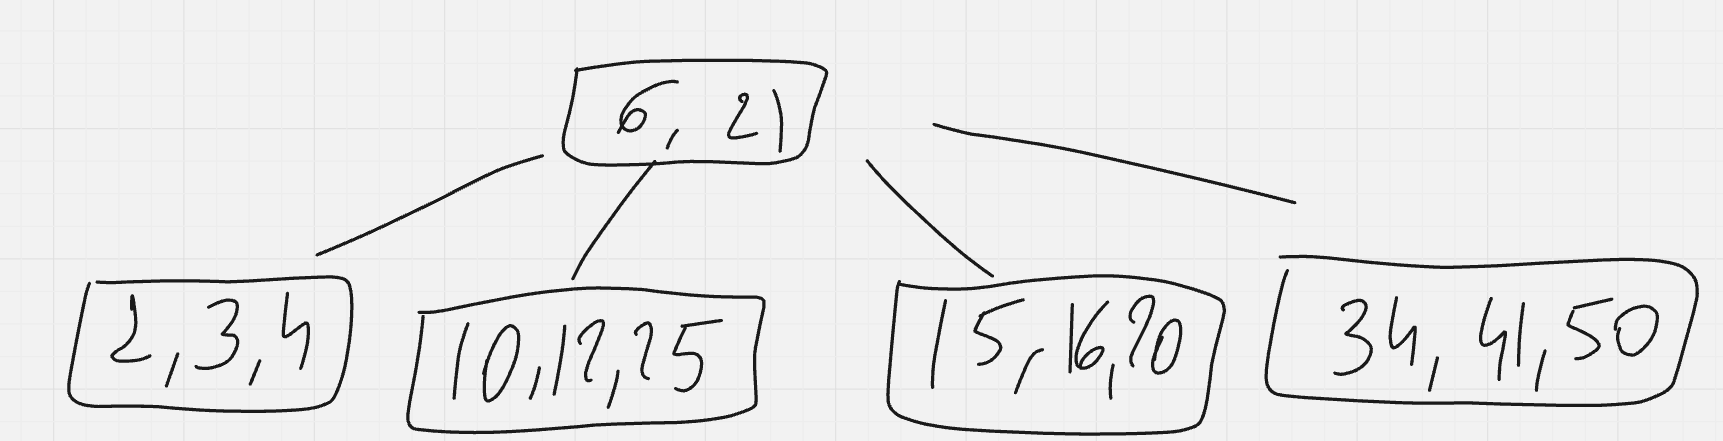 6, 21
2, 3, 4
10, 12, 25
15, 16, 20
34, 41, 50